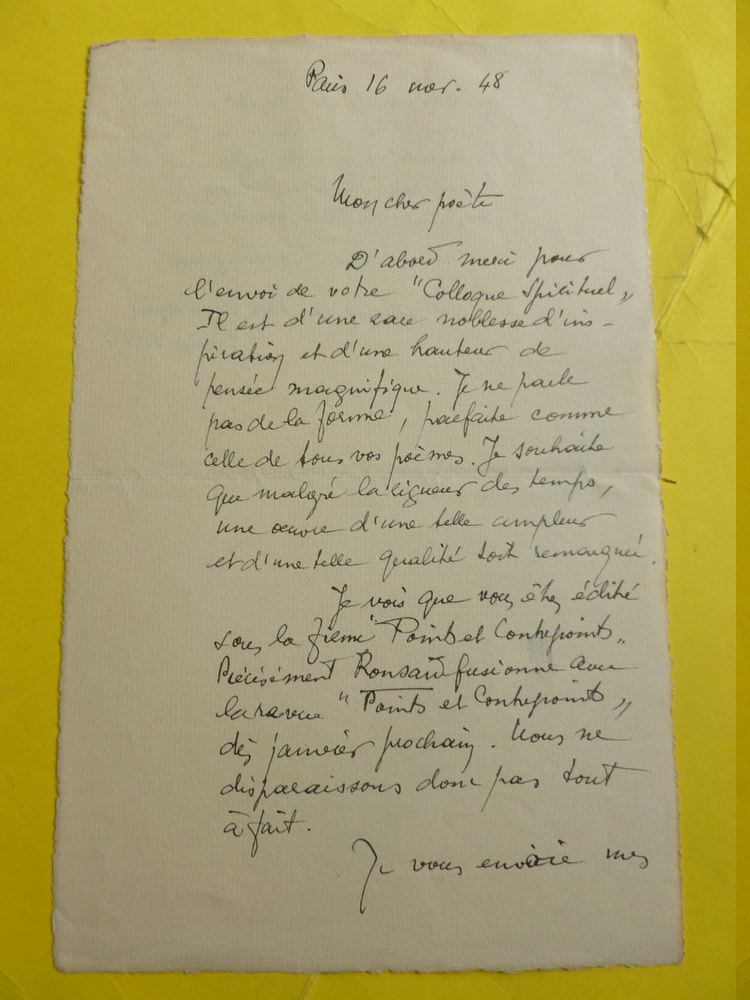 Paris 16 nov. 48
Mon cher poète
D'abord merci pour
l'envoi de votre "Colloque Spirituel"
Il est d'une rare noblesse d'ins-
piration et d'une hauteur de
pensée magnifique. Je ne parle
pas de la forme, parfaite comme
celle de tous vos poèmes. Je souhaite
que malgré la rigueur des temps,
une œuvre d'une telle ampleur
et d'une telle qualité soit remarquée.
Je vois que vous êtes édité
sous la firme "Points et Contrepoints"
Précisément Ronsard fusionne avec
la revue "Points et Contrepoints"
dès janvier prochain. Nous ne
disparaissons donc pas tout
à fait.
Je vous envoie mes